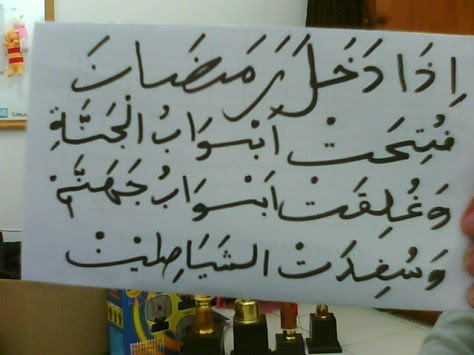 اِذَا دَخَلَ رَمَضَانَ
فُتِحَتْ اَبْوَابُ الْجَنَّةِ
وَغُلِقَتْ اَبْوَابُ جَهَنَّمْ
وَسُفِدَتْ الشَيَاطِيْنْ